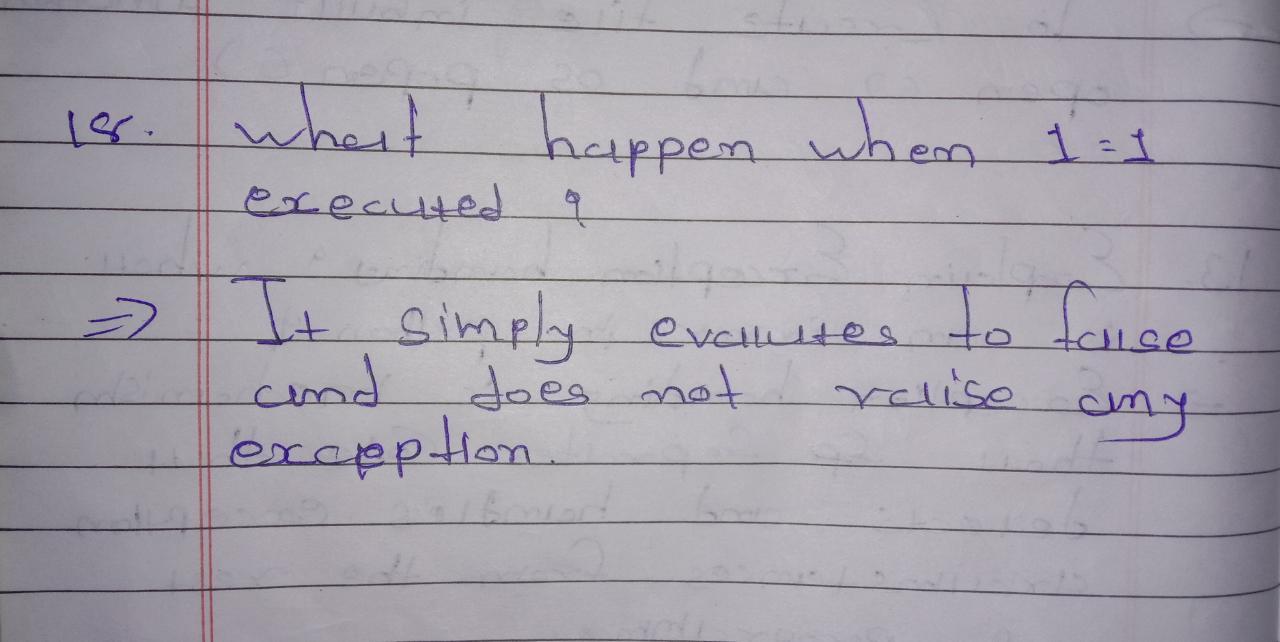 18. what happen when 1=1
executed ?
⇒ It simply evalutes to false
and does not raise any
exception.